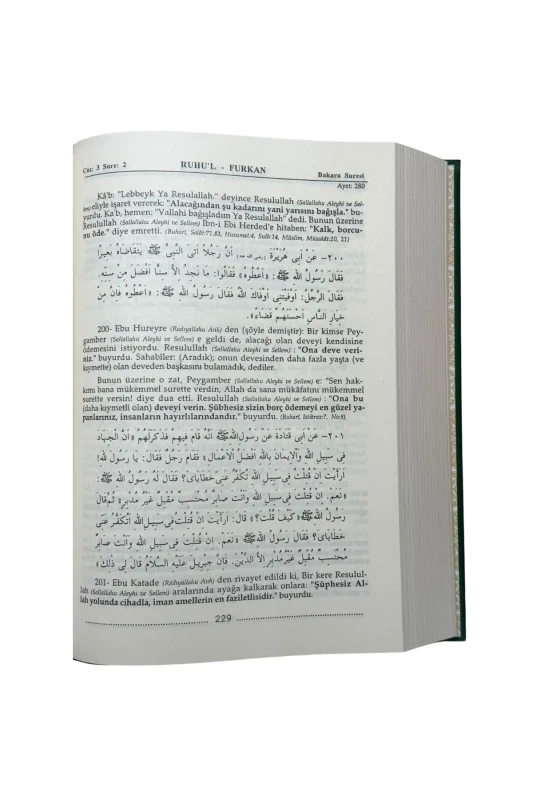 Cüz: 3 Sure: 2
RUHU'L - FURKAN
Bakara Suresi
Ayet: 280
Kâ'b: "Lebbeyk Ya Resulallah." deyince Resulullah (Sallallahu Aleyhi ve Sel-
lem) eliyle işaret vererek: "Alacağından şu kadarını yani yarısını bağışla." bu-
yurdu. Ka'b, hemen: "Vallahi bağışladım Ya Resulallah" dedi. Bunun üzerine
Resulullah (Sallallahu Aleyhi ve Sellem) İbn-i Ebi Herded'e hitaben: "Kalk, borcu-
nu öde." diye emretti. (Buhari, Salât:71,83, Husumat:4, Sulh:14, Müslim, Müsakât:20, 21)
٢٠٠- عَنْ اَبِى هُرَيْرَةَ اَنَّ رَجُلًا اَتَى النَّبِىَّ ﷺ يَتَقَاضَاهُ بَعِيرًا
فَقَالَ رَسُولُ اللّٰهِ ﷺ: «اَعْطُوهُ» فَقَالُوا: مَا نَجِدُ اِلَّا سِنًّا اَفْضَلَ مِنْ سِنِّهِ.
فَقَالَ الرَّجُلُ: اَوْفَيْتَنِى اَوْفَاكَ اللّٰهُ فَقَالَ رَسُولُ اللّٰهِ ﷺ: «اَعْطُوهُ فَاِنَّ مِنْ
خِيَارِ النَّاسِ اَحْسَنَهُمْ قَضَاءً».
200- Ebu Hureyre (Radıyallahu Anh) den (şöyle demiştir): Bir kimse Pey-
gamber (Sallallahu Aleyhi ve Sellem) e geldi de, alacağı olan deveyi kendisine
ödemesini istiyordu. Resulullah (Sallallahu Aleyhi ve Sellem) : "Ona deve veri-
niz." buyurdu. Sahabîler: (Aradık); onun devesinden daha fazla yaşta (ve
kıymette) olan deveden başkasını bulamadık, dediler.
Bunun üzerine o zat, Peygamber (Sallallahu Aleyhi ve Sellem) e: "Sen hak-
kımı bana mükemmel surette verdin, Allah da sana mükâfatını mükemmel
surette versin! diye dua etti. Resulullah (Sallallahu Aleyhi ve Sellem) : "Ona bu
(daha kıymetli olan) deveyi verin. Şübhesiz sizin borç ödemeyi en güzel ya-
panlarınız, insanların hayırlılarındandır." buyurdu. (Buhari, İstikraz:7, No:6)
٢٠١- عَنْ اَبِى قَتَادَةَ عَنْ رَسُولِ اللّٰهِ ﷺ اَنَّهُ قَامَ فِيهِمْ فَذَكَرَ لَهُمْ «اَنَّ الْجِهَادَ
فِى سَبِيلِ اللّٰهِ وَالْاِيمَانَ بِاللّٰهِ اَفْضَلُ الْاَعْمَالِ» فَقَامَ رَجُلٌ فَقَالَ: يَا رَسُولَ اللّٰهِ!
اَرَاَيْتَ اِنْ قُتِلْتُ فِى سَبِيلِ اللّٰهِ تُكَفَّرُ عَنِّى خَطَايَاىَ؟ فَقَالَ لَهُ رَسُولُ اللّٰهِ ﷺ:
«نَعَمْ. اِنْ قُتِلْتَ فِى سَبِيلِ اللّٰهِ وَاَنْتَ صَابِرٌ مُحْتَسِبٌ مُقْبِلٌ غَيْرُ مُدْبِرٍ» ثُمَّ قَالَ
رَسُولُ اللّٰهِ ﷺ «كَيْفَ قُلْتَ؟» قَالَ: اَرَاَيْتَ اِنْ قُتِلْتُ فِى سَبِيلِ اللّٰهِ اَتُكَفَّرُ عَنِّى
خَطَايَاىَ؟ فَقَالَ رَسُولُ اللّٰهِ ﷺ: «نَعَمْ. اِنْ قُتِلْتَ فِى سَبِيلِ اللّٰهِ وَاَنْتَ صَابِرٌ
مُحْتَسِبٌ مُقْبِلٌ غَيْرُ مُدْبِرٍ اِلَّا الدَّيْنَ. فَاِنَّ جِبْرِيلَ عَلَيْهِ السَّلَامُ قَالَ لِى ذٰلِكَ»
201- Ebu Katade (Radıyallahu Anh) den rivayet edildi ki, Bir kere Resulul-
lah (Sallallahu Aleyhi ve Sellem) aralarında ayağa kalkarak onlara: "Şüphesiz Al-
lah yolunda cihadla, iman amellerin en faziletlisidir." buyurdu.
229